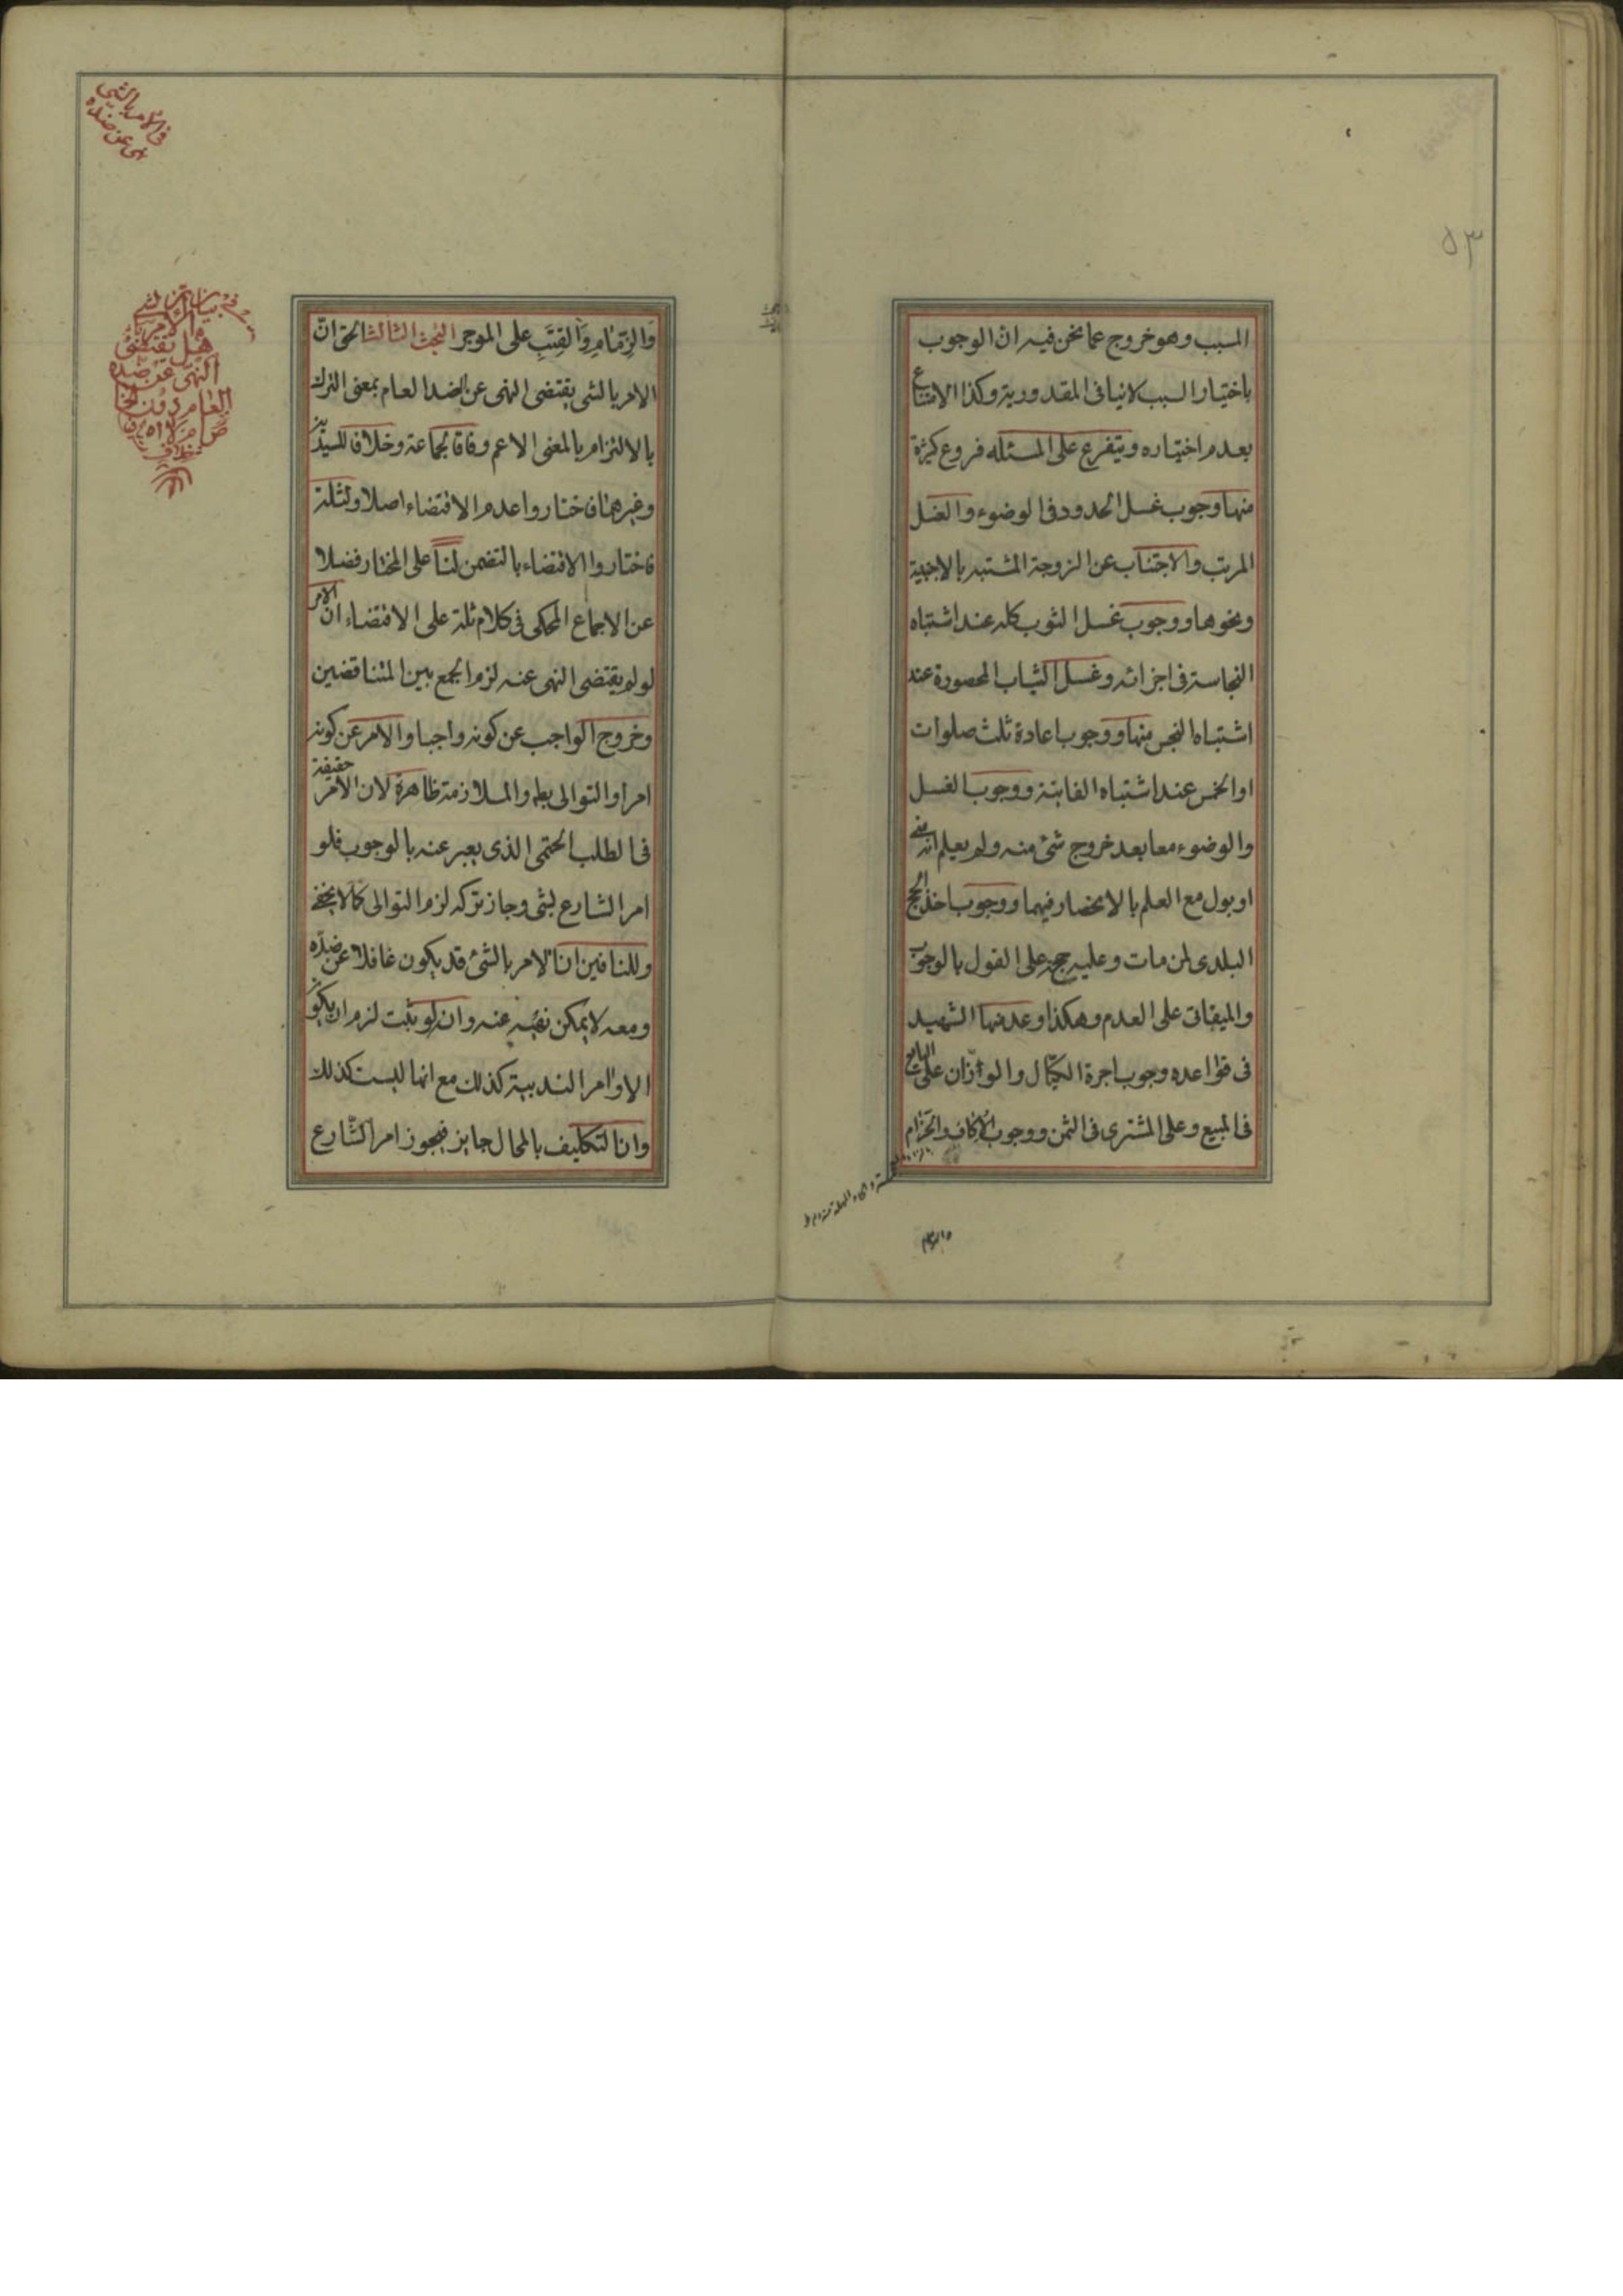 ٥٣
المسبب وهو خروج عما نحن فيه ان الوجوب
باختيار السبب لا ينافى المقدورية وكذا الامتناع
بعدم اختياره ويتفرع على المسئلة فروع كثيرة
منها وجوب غسل الحدود فى الوضوء والغسل
المرتب والاجتناب عن الزوجة المشتبه بالاجنبية
ونحوها ووجوب غسل الثوب كله عند اشتباه
النجاسة فى اجزائه وغسل الثياب المحصورة عند
اشتباه النجس منها ووجوب اعادة ثلث صلوات
او الخمس عند اشتباه الفايتة ووجوب الغسل
والوضوء معا بعد خروج شئ منه ولم يعلم انه منى
او بول مع العلم بالانحصار فيهما ووجوب اخذ الحج
البلدى لمن مات وعليه حج على القول بالوجوب
والميقاتى على العدم وهكذا وعد منها الشهيد
فى قواعده وجوب اجرة الكيّال والوزان على البايع
فى المبيع وعلى المشترى فى الثمن ووجوب الاكاف والحزام
والزمام
فى الامر بالشى
نهى عن ضده
فى بيان ان
الامر بالشى
هل يقتضى
النهى عن ضده
العام دون الخا
ص ام لا
وَالزِّمَامِ وَالقِتَبِ على الموجر البحث الثالث الحق انّ
الامر بالشى يقتضى النهى عن الضد العام بمعنى الترك
بالالتزام بالمعنى الاعم وفاقا لجماعة وخلافا للسيدين
وغيرهما فاختاروا عدم الاقتضاء اصلا ولثلة
فاختاروا الاقتضاء بالتضمن لنا على المختار فضلا
عن الاجماع المحكى فى كلام ثلة على الاقتضاء ان الامر
لو لم يقتضى النهى عنه لزم الجمع بين المتناقضين
وخروج الواجب عن كونه واجبا والامر عن كونه
امرا والتوالى بط والملازمة ظاهرة لان الامر حقيقة
فى الطلب الحتمى الذى يعبر عنه بالوجوب فلو
امر الشارع بشى وجاز تركه لزم التوالى كما لا يخفى
وللنافين ان الامر بالشئ قد يكون غافلا عن ضدّه
ومعه لا يمكن نهيه عنه وانه لو ثبت لزم ان يكون
الاوامر الندبية كذلك مع انها ليست كذلك
وان التكليف بالمحال جايز فيجوز امر الشّارع